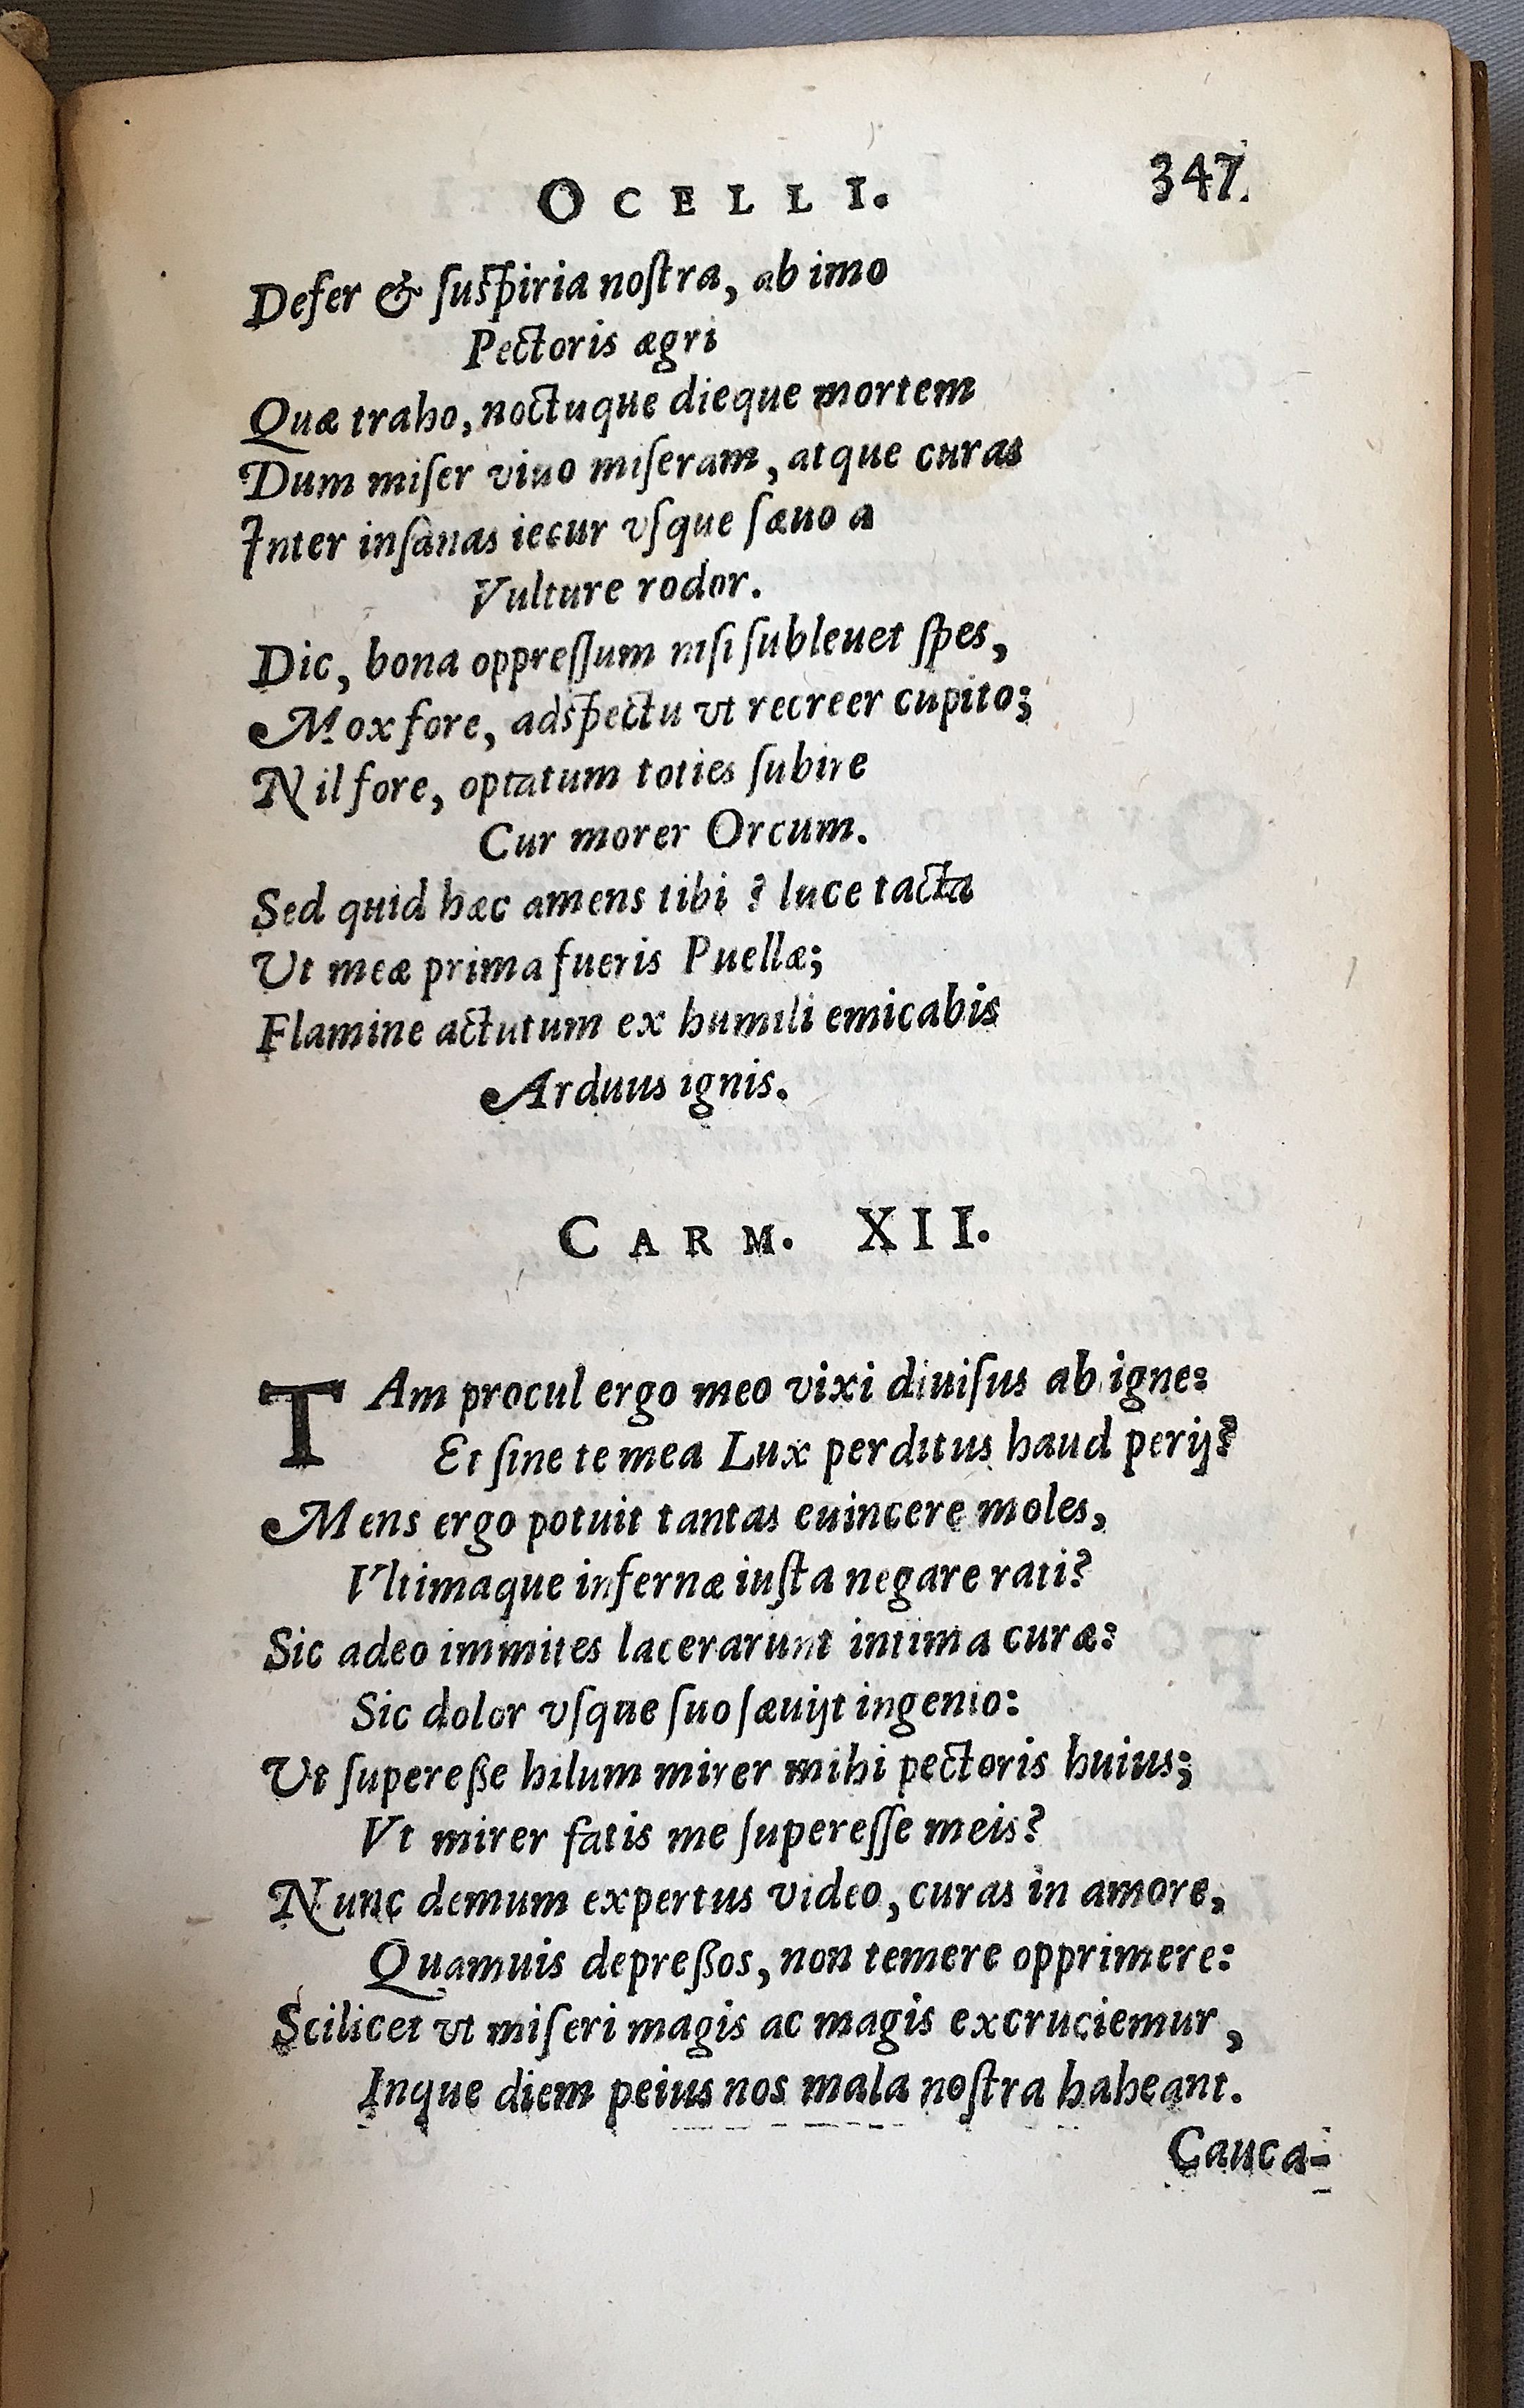 OCELLI. 347.
Defer & ſuſpiria noſtra, ab imo
Pectoris ægri
Quæ traho, noctuque dieque mortem
Dum miſer viuo miſeram, atque curas
Inter inſanas iecur vſque ſæuo a
Vulture rodor.
Dic, bona oppreſſum niſi ſubleuet ſpes,
Mox fore, adſpectu vt recreer cupito;
Nil fore, optatum toties ſubire
Cur morer Orcum.
Sed quid hæc amens tibi? luce tacta
Ut meæ prima fueris Puellæ;
Flamine actutum ex humili emicabis
Arduus ignis.
CARM. XII.
TAm procul ergo meo vixi diuiſus ab igne:
Et ſine te mea Lux perditus haud perij?
Mens ergo potuit tantas euincere moles,
Vltimaque infernæ iuſta negare rati?
Sic adeo immites lacerarunt intima curæ:
Sic dolor vſque ſuo ſæuijt ingenio:
Ut ſupereße hilum mirer mihi pectoris huius;
Vt mirer fatis me ſupereſſe meis?
Nunc demum expertus video, curas in amore,
Quamuis depreßos, non temere opprimere:
Scilicet vt miſeri magis ac magis excruciemur,
Inque diem peius nos mala noſtra haheant.
Cauca-